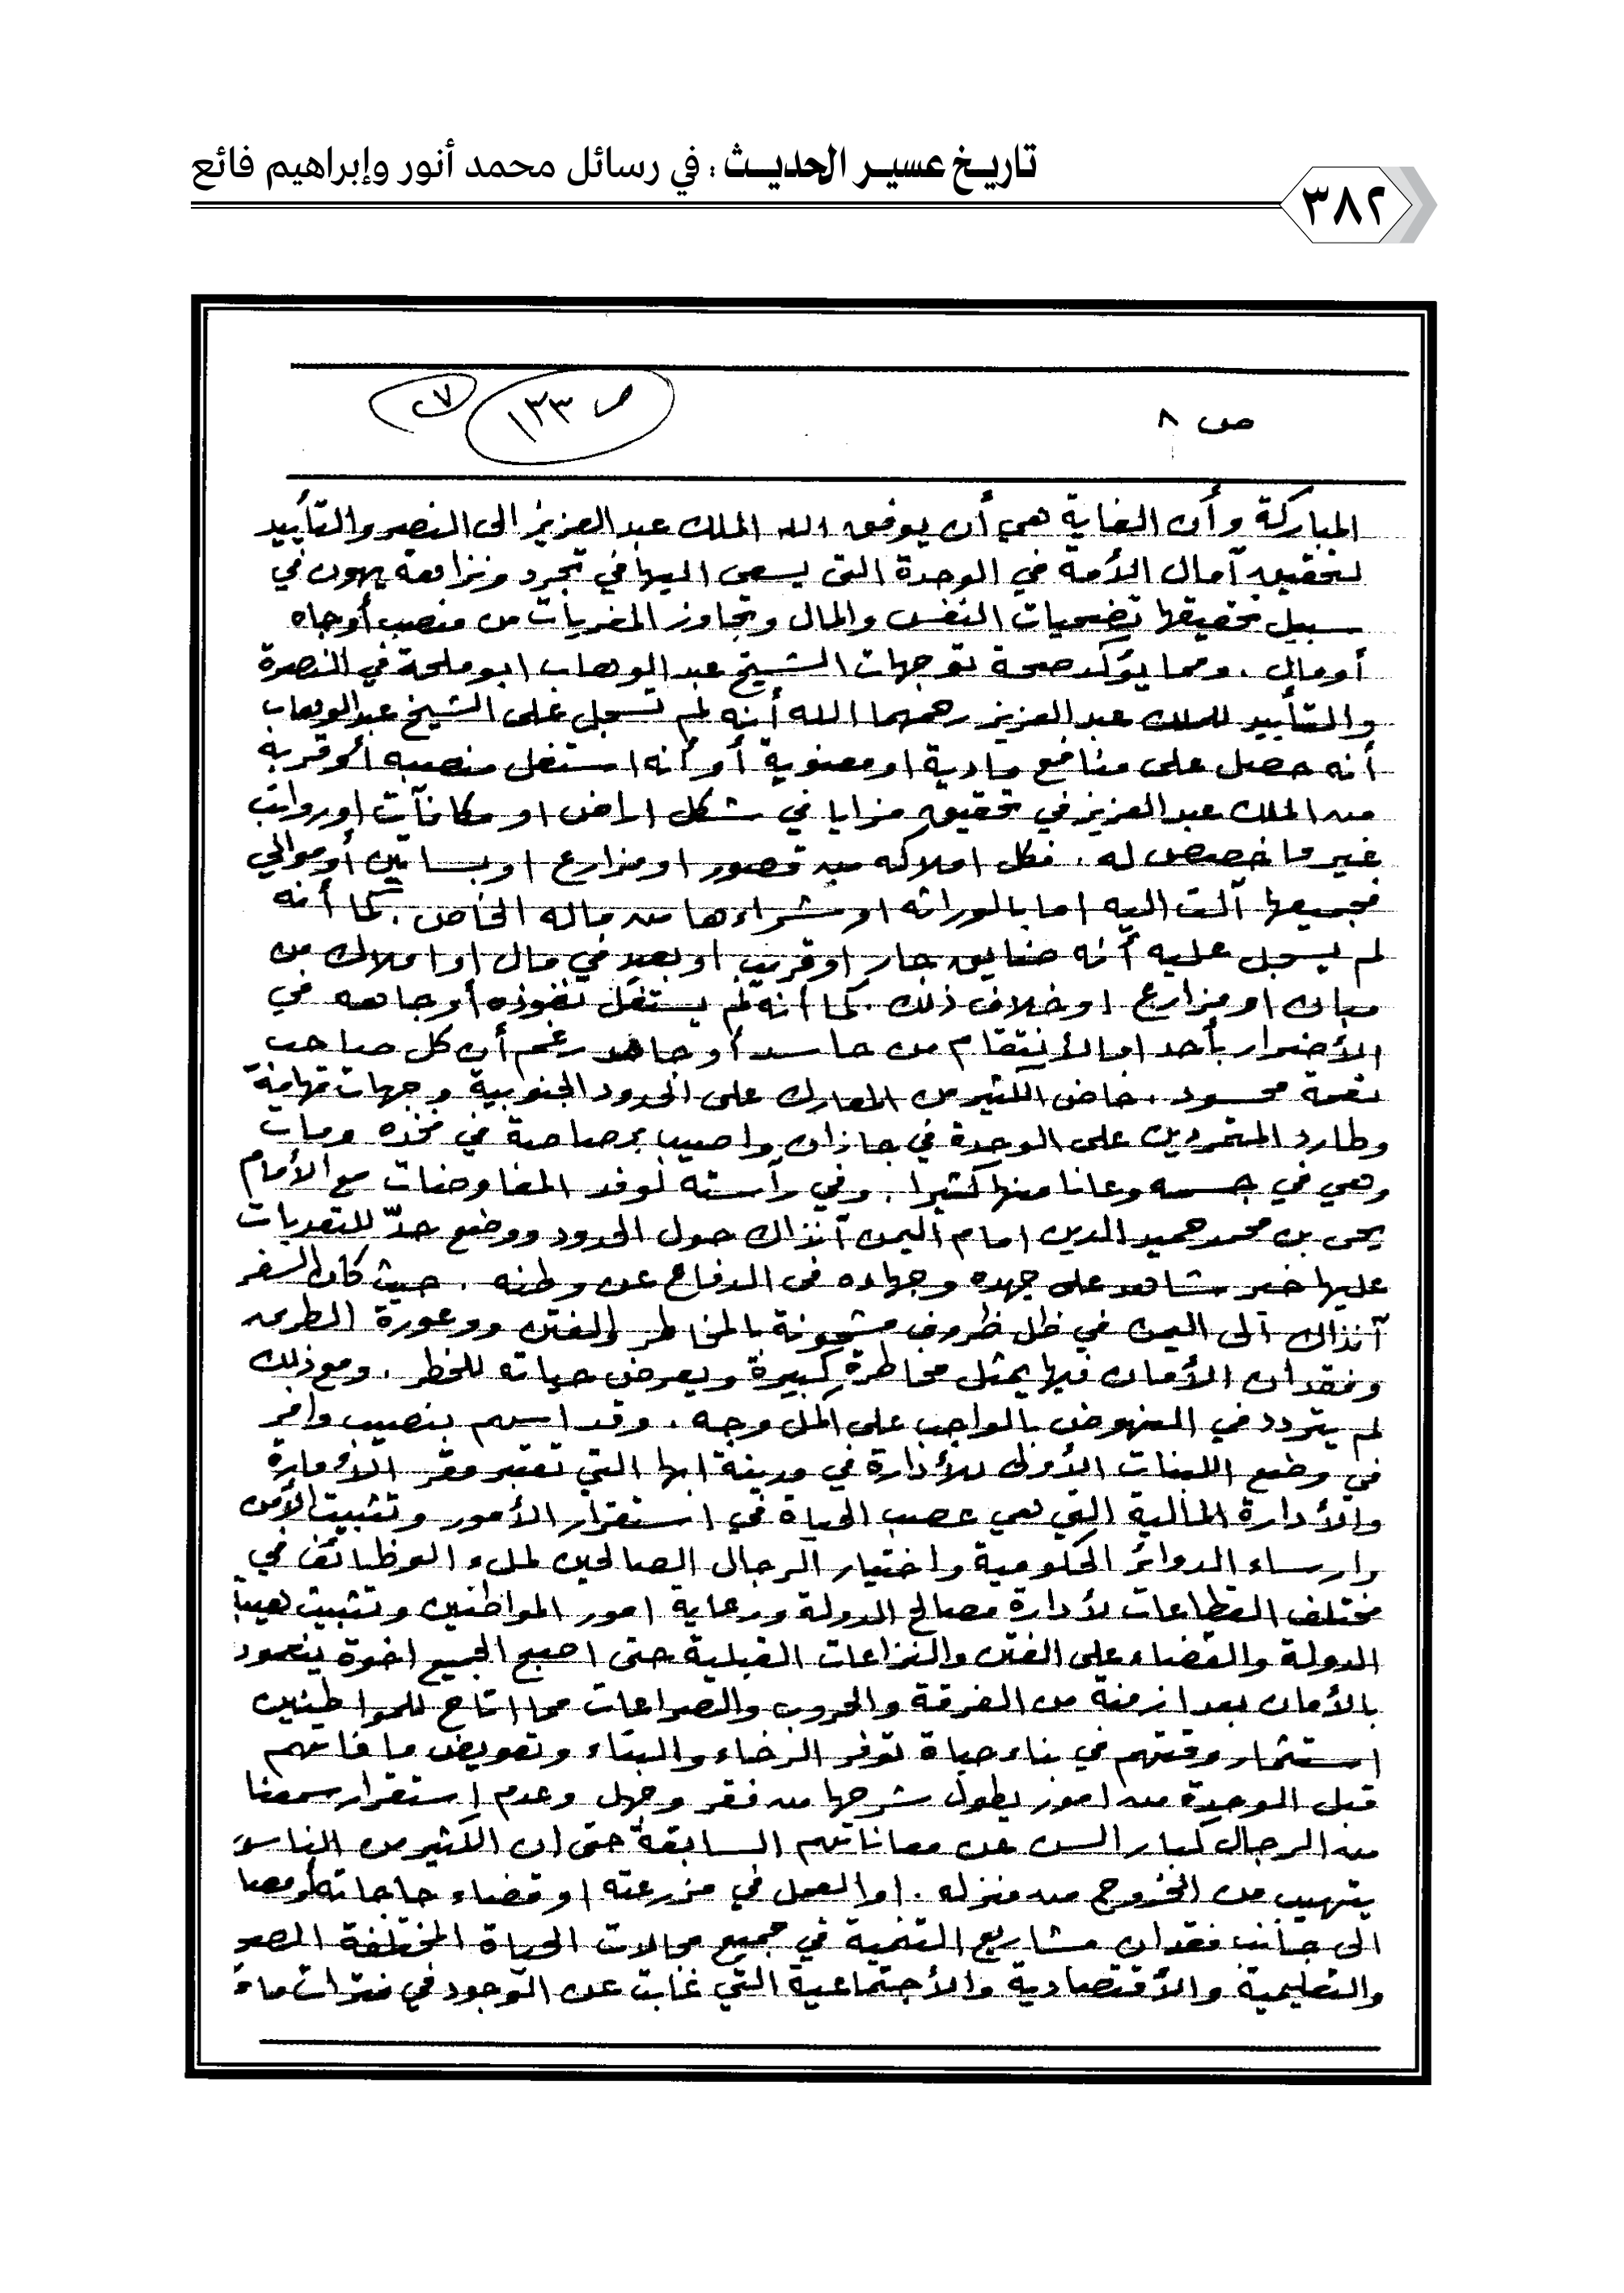 تاريخ عسير الحديث : في رسائل محمد أنور وإبراهيم فائع
٣٨٢
ص ٨
ص ١٣٣
٢٧
المباركة وأن الغاية هي أن يوفق الله الملك عبد العزيز الى النصر والتأييد
لتحقيق آمال الأمة في الوحدة التى يسعى اليها في تجرد ونزاهة يهون في
سبيل تحقيقها تضحيات النفس والمال وتجاوز المغريات من منصب أو جاه
أو مال . ومما يؤكد صحة توجهات الشيخ عبد الوهاب ابو ملحة في النصرة
والتأييد للملك عبد العزيز رحمهما الله أنه لم تسجل على الشيخ عبد الوهاب
أنه حصل على منافع مادية او معنوية أو أنه استغل منصبه أو قربه
من الملك عبد العزيز في تحقيق مزايا في شكل اراض او مكافآت او رواتب
غير ما خصص له . فكل املاكه من قصور او مزارع او بساتين أو موالي
فجميعها آلت اليه اما بالوراثه او شراءها من ماله الخاص . كما أنه
لم يسجل عليه أنه ضايق جار او قريب او بعيد في مال او املاك من
مبان او مزارع او خلاف ذلك . كما أنه لم يستغل نفوذه أو جاهه في
الأضرار بأحد او الأنتقام من حاسد أو جاهد رغم أن كل صاحب
نعمة محسود . خاض الكثير من المعارك على الحدود الجنوبية وجهات تهامة
وطارد المتمردين على الوحدة في جازان واصيب برصاصة في فخذه ومات
وهي في جسمه وعانا منها كثيرا . وفي رآسته لوفد المفاوضات مع الأمام
يحى بن محمد حميد الدين امام اليمن آنذاك حول الحدود ووضع حدّ للتعديات
عليها خير شاهد على جهده وجهاده فى الدفاع عن وطنه . حيث كان السفر
آنذاك الى اليمن في ظل ظروف مشحونة بالمخاطر والفتن ووعورة الطريق
وفقدان الأمان فيها يمثل مخاطرة كبيرة ويعرض حياته للخطر . ومع ذلك
لم يتردد في النهوض بالواجب على اكمل وجه . وقد اسهم بنصيب وافر
في وضع اللبنات الأولى للأدارة في مدينة ابها التي تعتبر مقر الأمارة
والأدارة المالية التي هي عصب الحياة في استقرار الأمور وتثبيت الأمن
وارساء الدوائر الحكومية واختيار الرجال الصالحين لملء الوظائف في
مختلف القطاعات لأدارة مصالح الدولة ورعاية امور المواطنين وتثبيت هيبة
الدولة والقضاء على الفتن والنزاعات القبلية حتى اصبح الجميع اخوة ينعمون
بالأمان بعد ازمنة من الفرقة والحروب والصراعات مما اتاح للمواطنين
استثمار وقتهم في بناء حياة توفر الرخاء والبناء وتعويض ما فاتهم
قبل الوحدة من امور يطول شرحها من فقر وجهل وعدم استقرار سمعنا
من الرجال كبار السن عن معاناتهم السابقة حتى ان الكثير من الناس
يتهيب من الخروج من منزله . او العمل في مزرعته او قضاء حاجاته
الى جانب فقدان مشاريع التنمية في جميع مجالات الحياة المختلفة
والتعليمية والأقتصادية والأجتماعية التي غابت عن الوجود في فترات